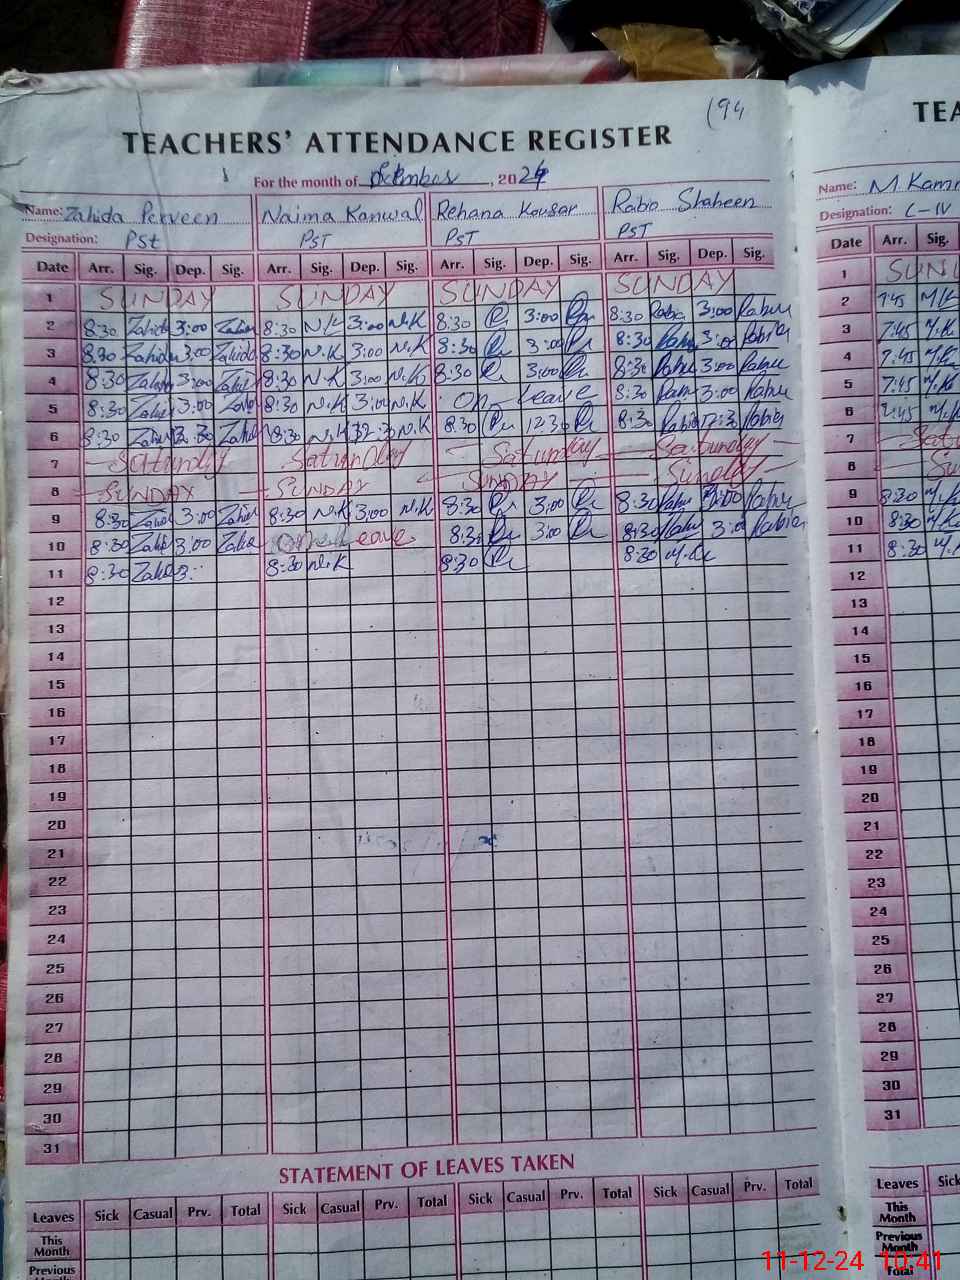 (94
TEACHERS' ATTENDANCE REGISTER
TEA
For the month of December, 2024
Name: Zahida Perveen Naima Kanwal Rehana Kousar Rabia Shaheen
Name: M. Kamr
Designation: PSt PST PST PST
Designation: C-IV
Date Arr. Sig. Dep. Sig. Arr. Sig. Dep. Sig. Arr. Sig. Dep. Sig. Arr. Sig. Dep. Sig.
Date Arr. Sig.
1 SUNDAY SUNDAY SUNDAY SUNDAY
1 SUN
2 8:30 Zahida 3:00 8:30 N.K 3:00 N.K 8:30 3:00 8:30 Rabia 3:00
2 7:45 M.K
3 8:30 Zahida 3:00 Zahida 8:30 N.K 3:00 N.K 8:30 3:00 8:30 3:00
3 7:45 M.K
4 8:30 3:00 8:30 N.K 3:00 N.K 8:30 3:00 8:30 3:00
4 7:45 M.K
5 8:30 3:00 8:30 N.K 3:00 N.K On leave 8:30 3:00
5 7:45 M.K
6 8:30 12:30 8:30 N.K 12:30 N.K 8:30 12:30 8:30 Rabia 12:30 Rabia
6 7:45 M.K
7 Saturday Saturday Saturday Saturday
7 Satu
8 SUNDAY SUNDAY SUNDAY Sunday
8 Su
9 8:30 3:00 8:30 N.K 3:00 N.K 8:30 3:00 8:30 3:00
9 8:30 M.K
10 8:30 3:00 One Leave 8:30 3:00 8:30 3:00 Rabia
10 8:30 M.K
11 8:30 3: 8:30 N.K 8:30 8:30
11 8:30 M.K
12
12
13
13
14
14
15
15
16
16
17
17
18
18
19
19
20
20
21
21
22
22
23
23
24
24
25
25
26
26
27
27
28
28
29
29
30
30
31
31
STATEMENT OF LEAVES TAKEN
Leaves Sick Casual Prv. Total Sick Casual Prv. Total Sick Casual Prv. Total Sick Casual Prv. Total
Leaves Sick
This Month
This Month
Previous
Previous Month
Total
11-12-24 10:41